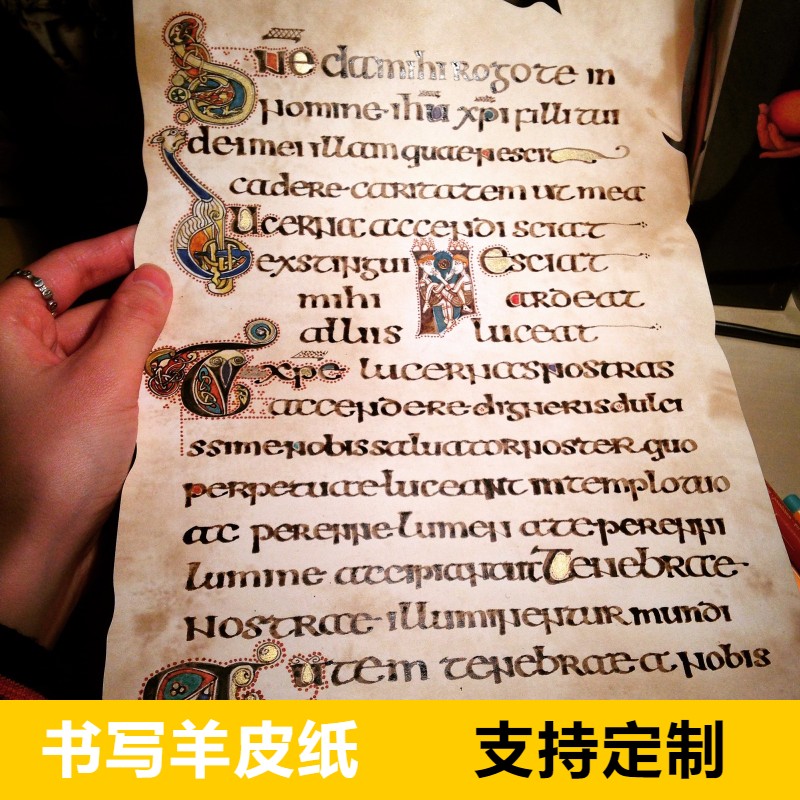 Sine da mihi rogo te in
nomine ihu xpi filii tui
dei mei illam quae nescit
cadere caritatem ut mea
lucerna accendi sciat
exstingui nesciat
mihi ardeat
aliis luceat
Tu xpe lucernas nostras
accendere digneris dulci
ssime nobis saluator noster quo
perpetuae luceant in templo tuo
ac perenne lumen a te perenni
lumine accipiant Tenebrae
nostrae illuminentur mundi
autem tenebrae a nobis
书写羊皮纸 支持定制